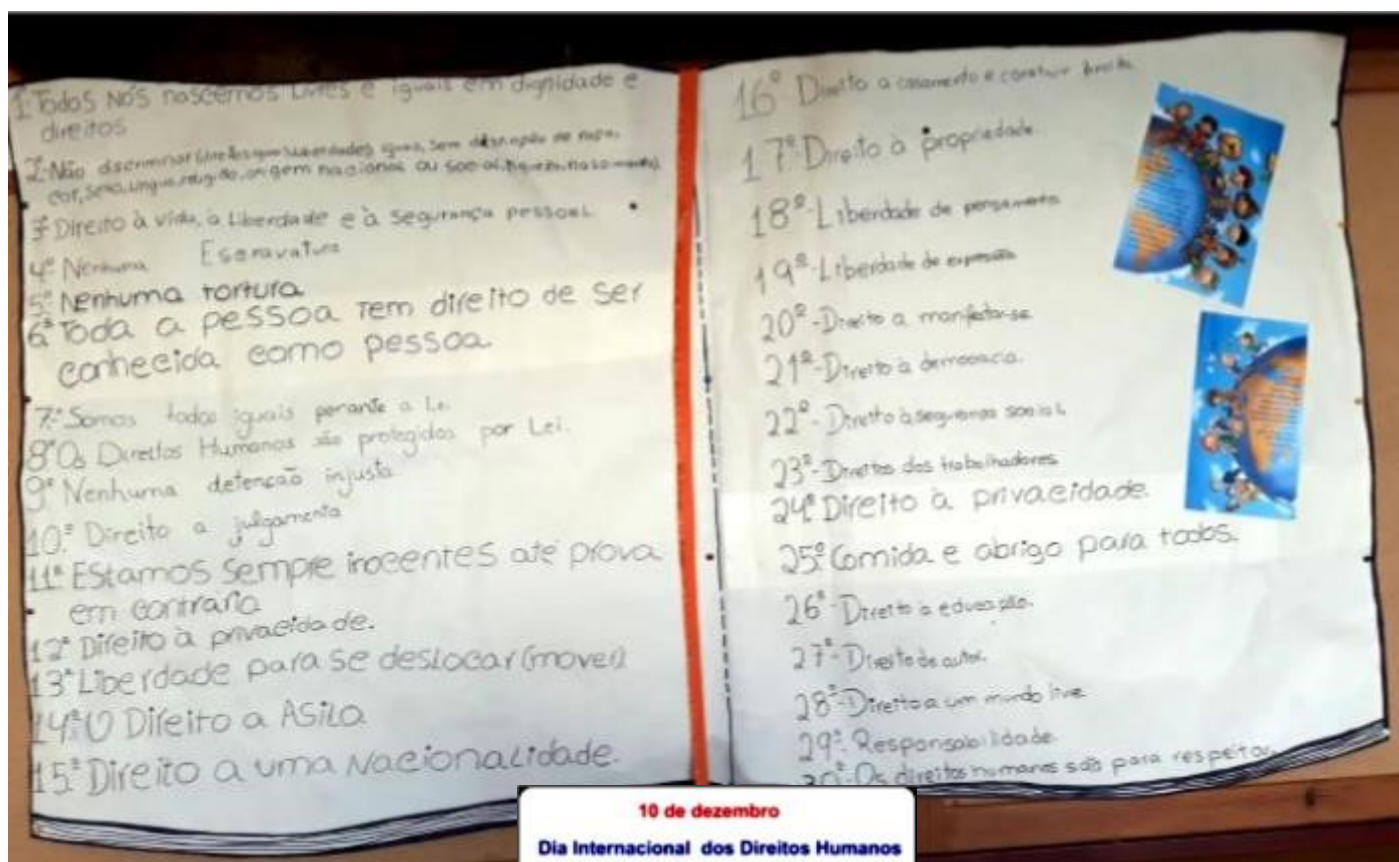 1º Todos Nós nascemos Livres e iguais em dignidade e
direitos
2º Não discriminar
cor, sexo, Língua, religião, origem nacional ou social, riqueza, nascimento)
3º Direito à vida, à Liberdade e à segurança pessoal
4º Nenhuma Escravatura
5º Nenhuma tortura
6º Toda a pessoa tem direito de ser
conhecida como pessoa
7º Somos todos iguais perante a Lei
8º Os Direitos Humanos são protegidos por Lei.
9º Nenhuma detenção injusta
10º Direito a julgamento
11º EStamos sempre inocentes até prova
em contraria
12º Direito à privacidade.
13º Liberdade para se deslocar (mover)
14º O Direito a ASilo
15º Direito a uma Nacionalidade.
16º Direito a casamento e construir família
17º-Direito à propriedade.
18º-Liberdade de pensamento
19º-Liberdade de expressão
20º-Direito a manifestar-se
21º-Direito à democracia.
22º-Direito à segurança social
23º-Direitos dos trabalhadores
24º Direito à privacidade.
25º Comida e abrigo para todos.
26º-Direito à educação.
27º-Direito de autor.
28º-Direito a um mundo livre
29º-Responsabilidade.
30º-Os direitos humanos são para respeitar
10 de dezembro
Dia Internacional dos Direitos Humanos